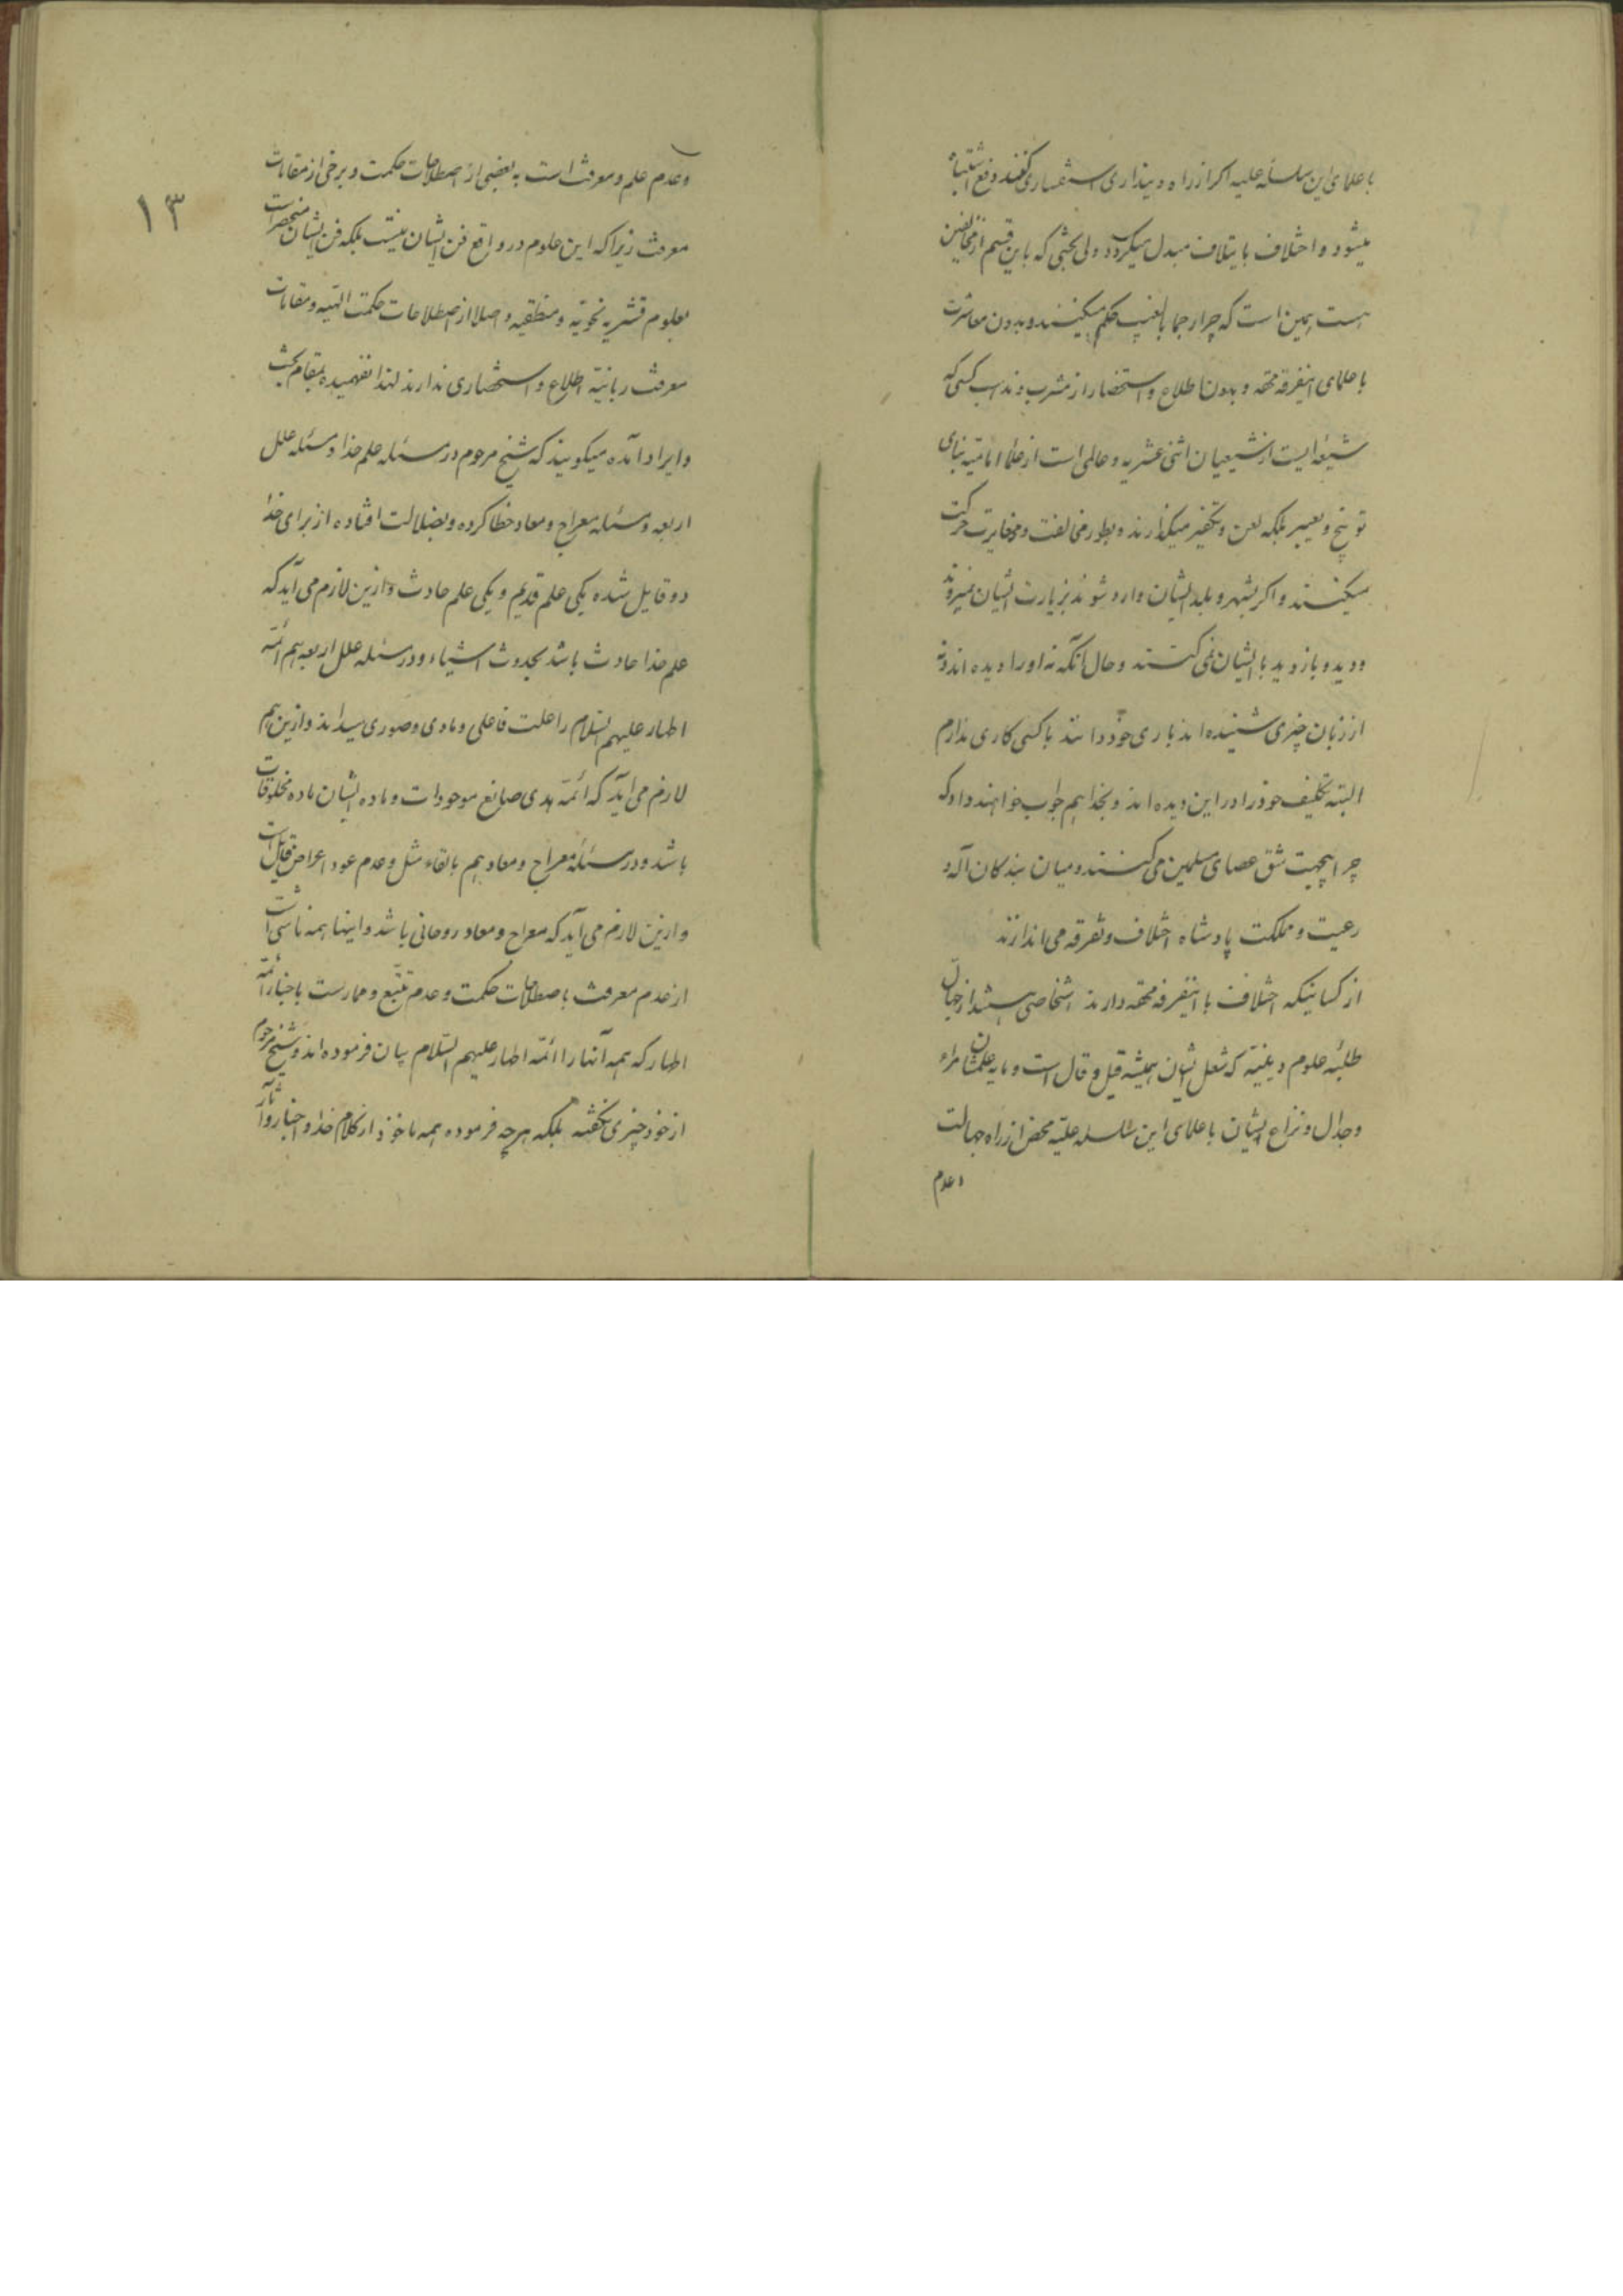 با علمای این سلسله علیه اکر از راه دینداری استفساری کنند رفع اشتباه
میشود و اختلاف بایتلاف مبدل میکردد ولی بحثی که باین قسم از مخالفین
هست همین است که چرا رجما بالغیب حکم میکنند و بدون معاشرت
با علمای اینفرقه محقه و بدون اطلاع و استحضار از مشرب و مذهب کسی که
شیعه ایست از شیعیان اثنی عشریه و عالمی است از علماء امامیه بنای
توبیخ و تعییر بلکه لعن و تکفیر میکذارند و بطور مخالفت و مغایرت حرکت
میکنند و اکر بشهر و بلد ایشان وارد شوند بزیارت ایشان نمیروند
و دید و بازدید با ایشان نمی کنند و حال آنکه نه او را دیده اند و نه
از زبان چیزی شنیده اند باری خود دانند با کسی کاری ندارم
البته تکلیف خود را در این دیده اند و بخدا هم جواب خواهند داد که
چرا بیجهت شق عصای مسلمین می کنند و میان بندکان اله و
رعیت و مملکت پادشاه اختلاف و تفرقه می اندازند
از کسانیکه اختلاف با اینفرقه محقه دارند اشخاصی هستند از جهال
طلبه علوم دینیه که شغل ایشان همیشه قیل و قال است و مایه علمشان مراء
و جدال و نزاع ایشان با علمای این سلسله علیه محض از راه جهالت
و عدم
۱۳
و عدم علم و معرفت است به بعضی از اصطلاحات حکمت و برخی از مقامات
معرفت زیرا که این علوم در واقع فن ایشان نیست بلکه فن ایشان منحصر است
بعلوم قشریه نحویه و منطقیه و اصلا از اصطلاحات حکمت الهیه و مقامات
معرفت ربانیه اطلاع و استحضاری ندارند لهذا نفهمیده بمقام بحث
و ایراد آمده میکویند که شیخ مرحوم در مسئله علم خدا و مسئله علل
اربعه و مسئله معراج و معاد خطا کرده و بضلالت افتاده از برای خدا
دو قایل شده یکی علم قدیم و یکی علم حادث و ازین لازم می آید که
علم خدا حادث باشد بحدوث اشیاء و در مسئله علل اربعه هم ائمه
اطهار علیهم السلام را علت فاعلی و مادی و صوری میداند و ازین هم
لازم می آید که ائمه هدی صانع موجودات و ماده ایشان ماده مخلوقات
باشد و در مسئله معراج و معاد هم بالقاء مثل و عدم عود اعراض قایل است
و ازین لازم می آید که معراج و معاد روحانی باشد و اینها همه ناشی است
از عدم معرفت باصطلاحات حکمت و عدم تتبع و ممارست باخبار ائمه
اطهار که همه آنها را ائمه اطهار علیهم السلام بیان فرموده اند و شیخ مرحوم
از خود چیزی نکفته بلکه هر چه فرموده همه ماخوذ از کلام خدا و اخبار و آثار